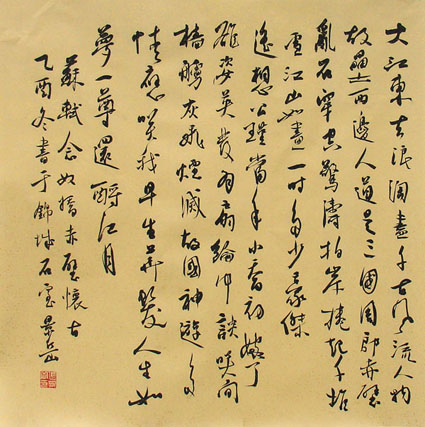 大江東去浪淘盡千古風流人物
故壘西邊人道是三國周郎赤壁
亂石穿空驚濤拍岸捲起千堆
雪江山如畫一時多少豪傑
遙想公瑾當年小喬初嫁了
雄姿英發羽扇綸巾談咲間
檣艣灰飛煙滅故國神遊多
情應咲我早生華髮人生如
夢一尊還酹江月
蘇軾念奴嬌赤壁懷古
乙酉冬書于錦城石室